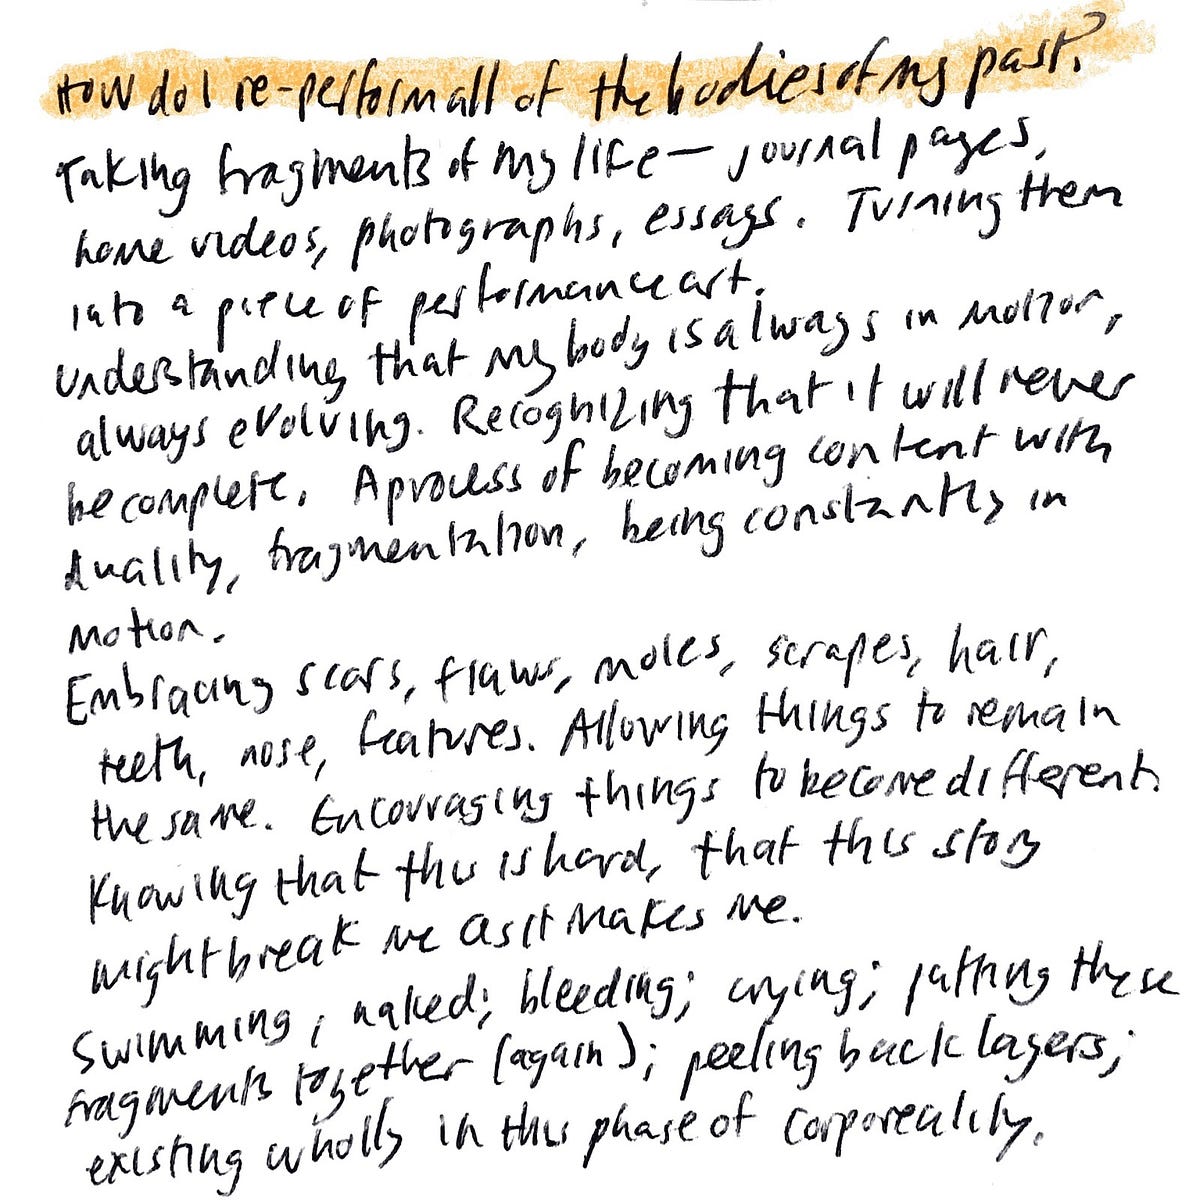 How do I re-perform all of the bodies of my past?
Taking fragments of my life— journal pages,
home videos, photographs, essays. Turning them
into a piece of performance art.
Understanding that my body is always in motion,
always evolving. Recognizing that it will never
be complete. A process of becoming content with
duality, fragmentation, being constantly in
motion.
Embracing scars, flaws, moles, scrapes, hair,
teeth, nose, features. Allowing things to remain
the same. Encouraging things to become different.
Knowing that this is hard, that this story
might break me as it makes me.
Swimming, naked; bleeding; crying; putting these
fragments together (again); peeling back layers;
existing wholly in this phase of corporeality.